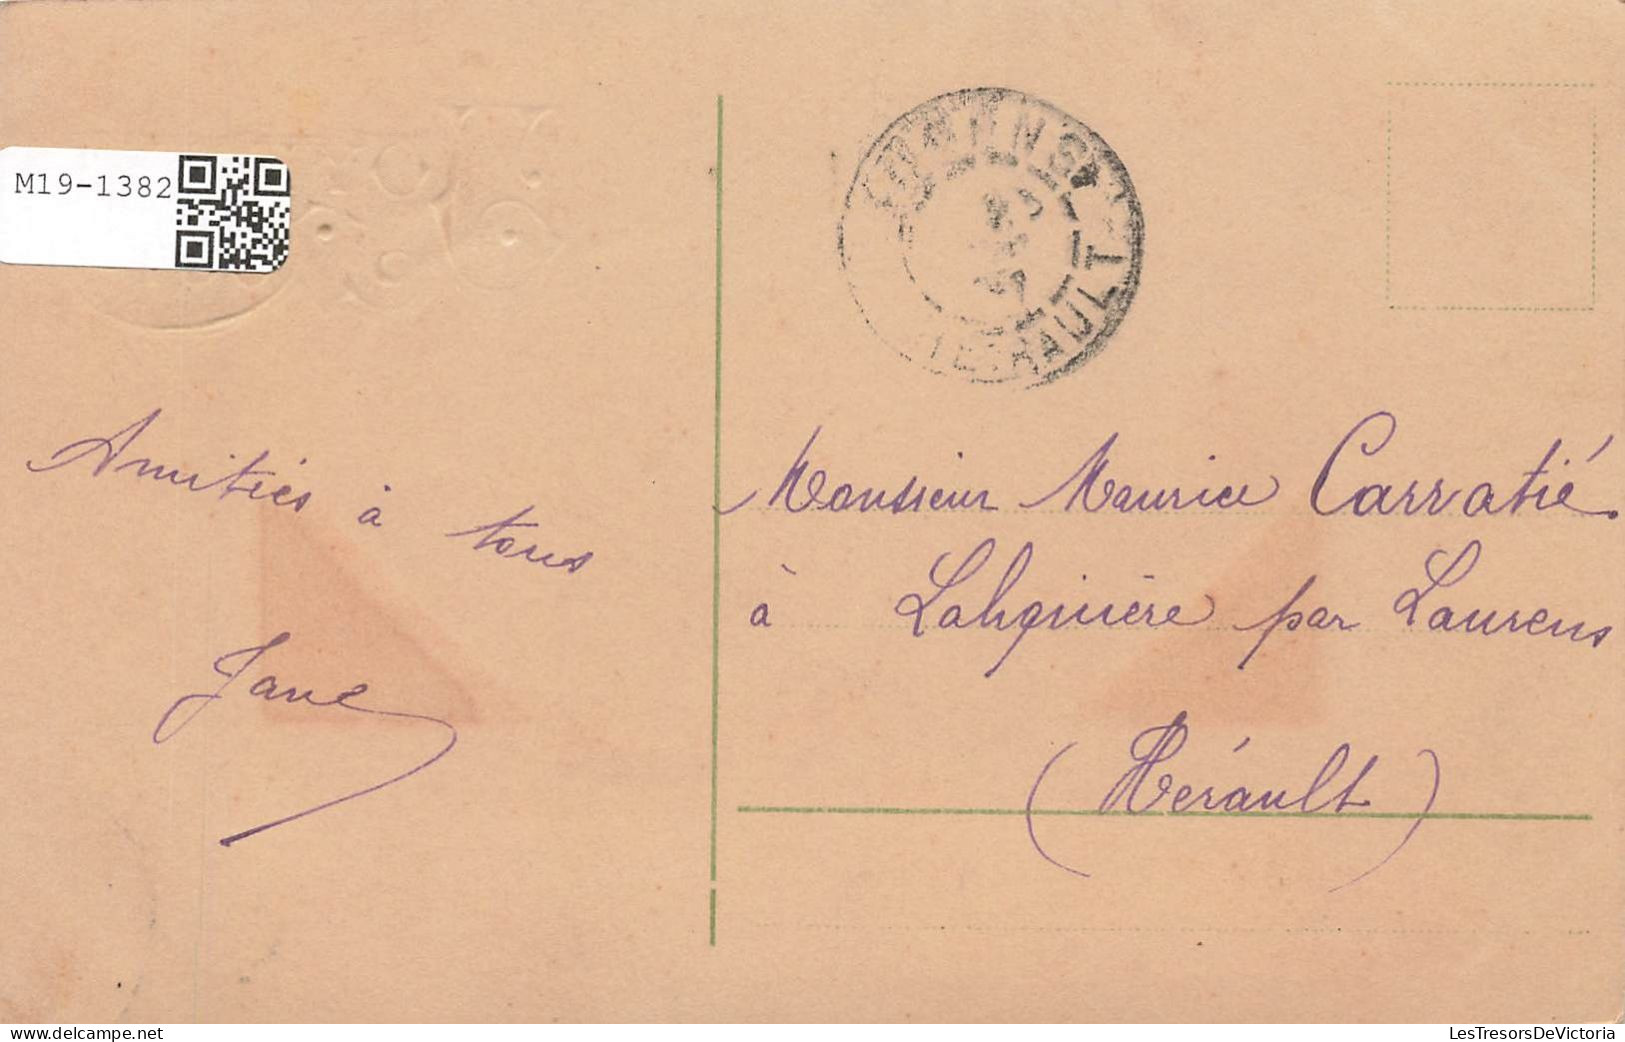 M19-1382
HÉRAULT
Amitiés à tous
Jane
Monsieur Maurice Carratié.
à Laliquière par Laurens
(Hérault)
Delcampe.net
LesTresorsDeVictoria